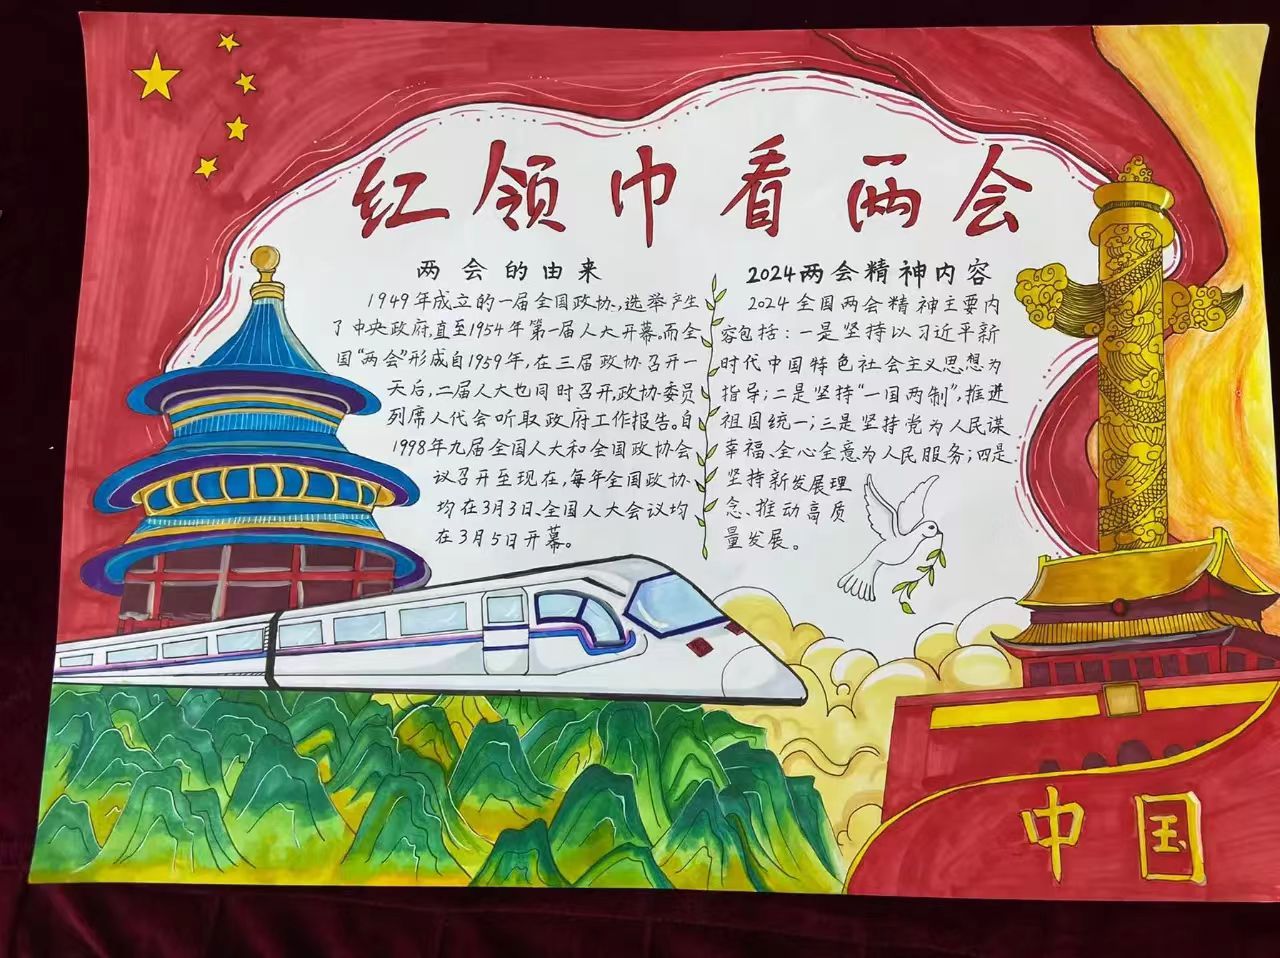 红领巾看两会
两会的由来
1949年成立的一届全国政协,选举产生
了中央政府,直至1954年第一届人大开幕。而全
国“两会”形成自1959年,在三届政协召开一
天后,二届人大也同时召开,政协委员
列席人代会听取政府工作报告。自
1998年九届全国人大和全国政协会
议召开至现在,每年全国政协
均在3月3日、全国人大会议均
在3月5日开幕。
2024两会精神内容
2024全国两会精神主要内
容包括:一是坚持以习近平新
时代中国特色社会主义思想为
指导;二是坚持“一国两制”,推进
祖国统一;三是坚持党为人民谋
幸福、全心全意为人民服务;四是
坚持新发展理
念、推动高质
量发展。
中国